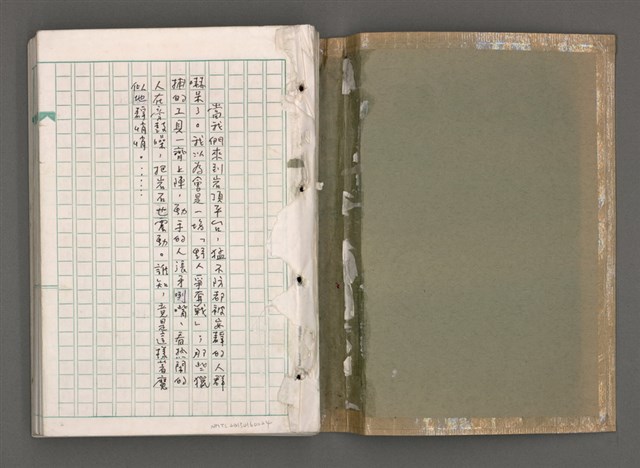 當我們來到岩頂平台，猛不防都被安靜的人群
嚇呆了。我以為會是一場「野人爭奪戰」，那些獵
捕的工具一齊上陣，動手的人張牙咧嘴、看熱鬧的
人在旁鼓噪，把岩石也震動。誰知，竟是這樣着魔
似地靜悄悄。……